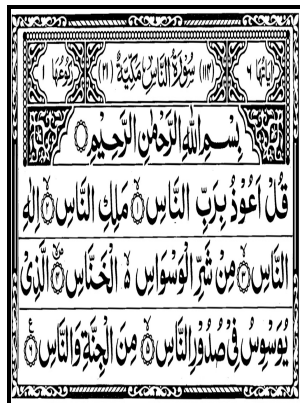 اٰيَاتُهَا ٦ (١١٤) سُوْرَةُ النَّاسِ مَكِّيَّةٌ (٢١) رُكُوْعُهَا ١
بِسْمِ اللّٰهِ الرَّحْمٰنِ الرَّحِيْمِ
قُلْ اَعُوْذُ بِرَبِّ النَّاسِ ۙ مَلِكِ النَّاسِ ۙ اِلٰهِ
النَّاسِ ۙ مِنْ شَرِّ الْوَسْوَاسِ ۙ الْخَنَّاسِ ۙ الَّذِىْ
يُوَسْوِسُ فِىْ صُدُوْرِ النَّاسِ ۙ مِنَ الْجِنَّةِ وَالنَّاسِ